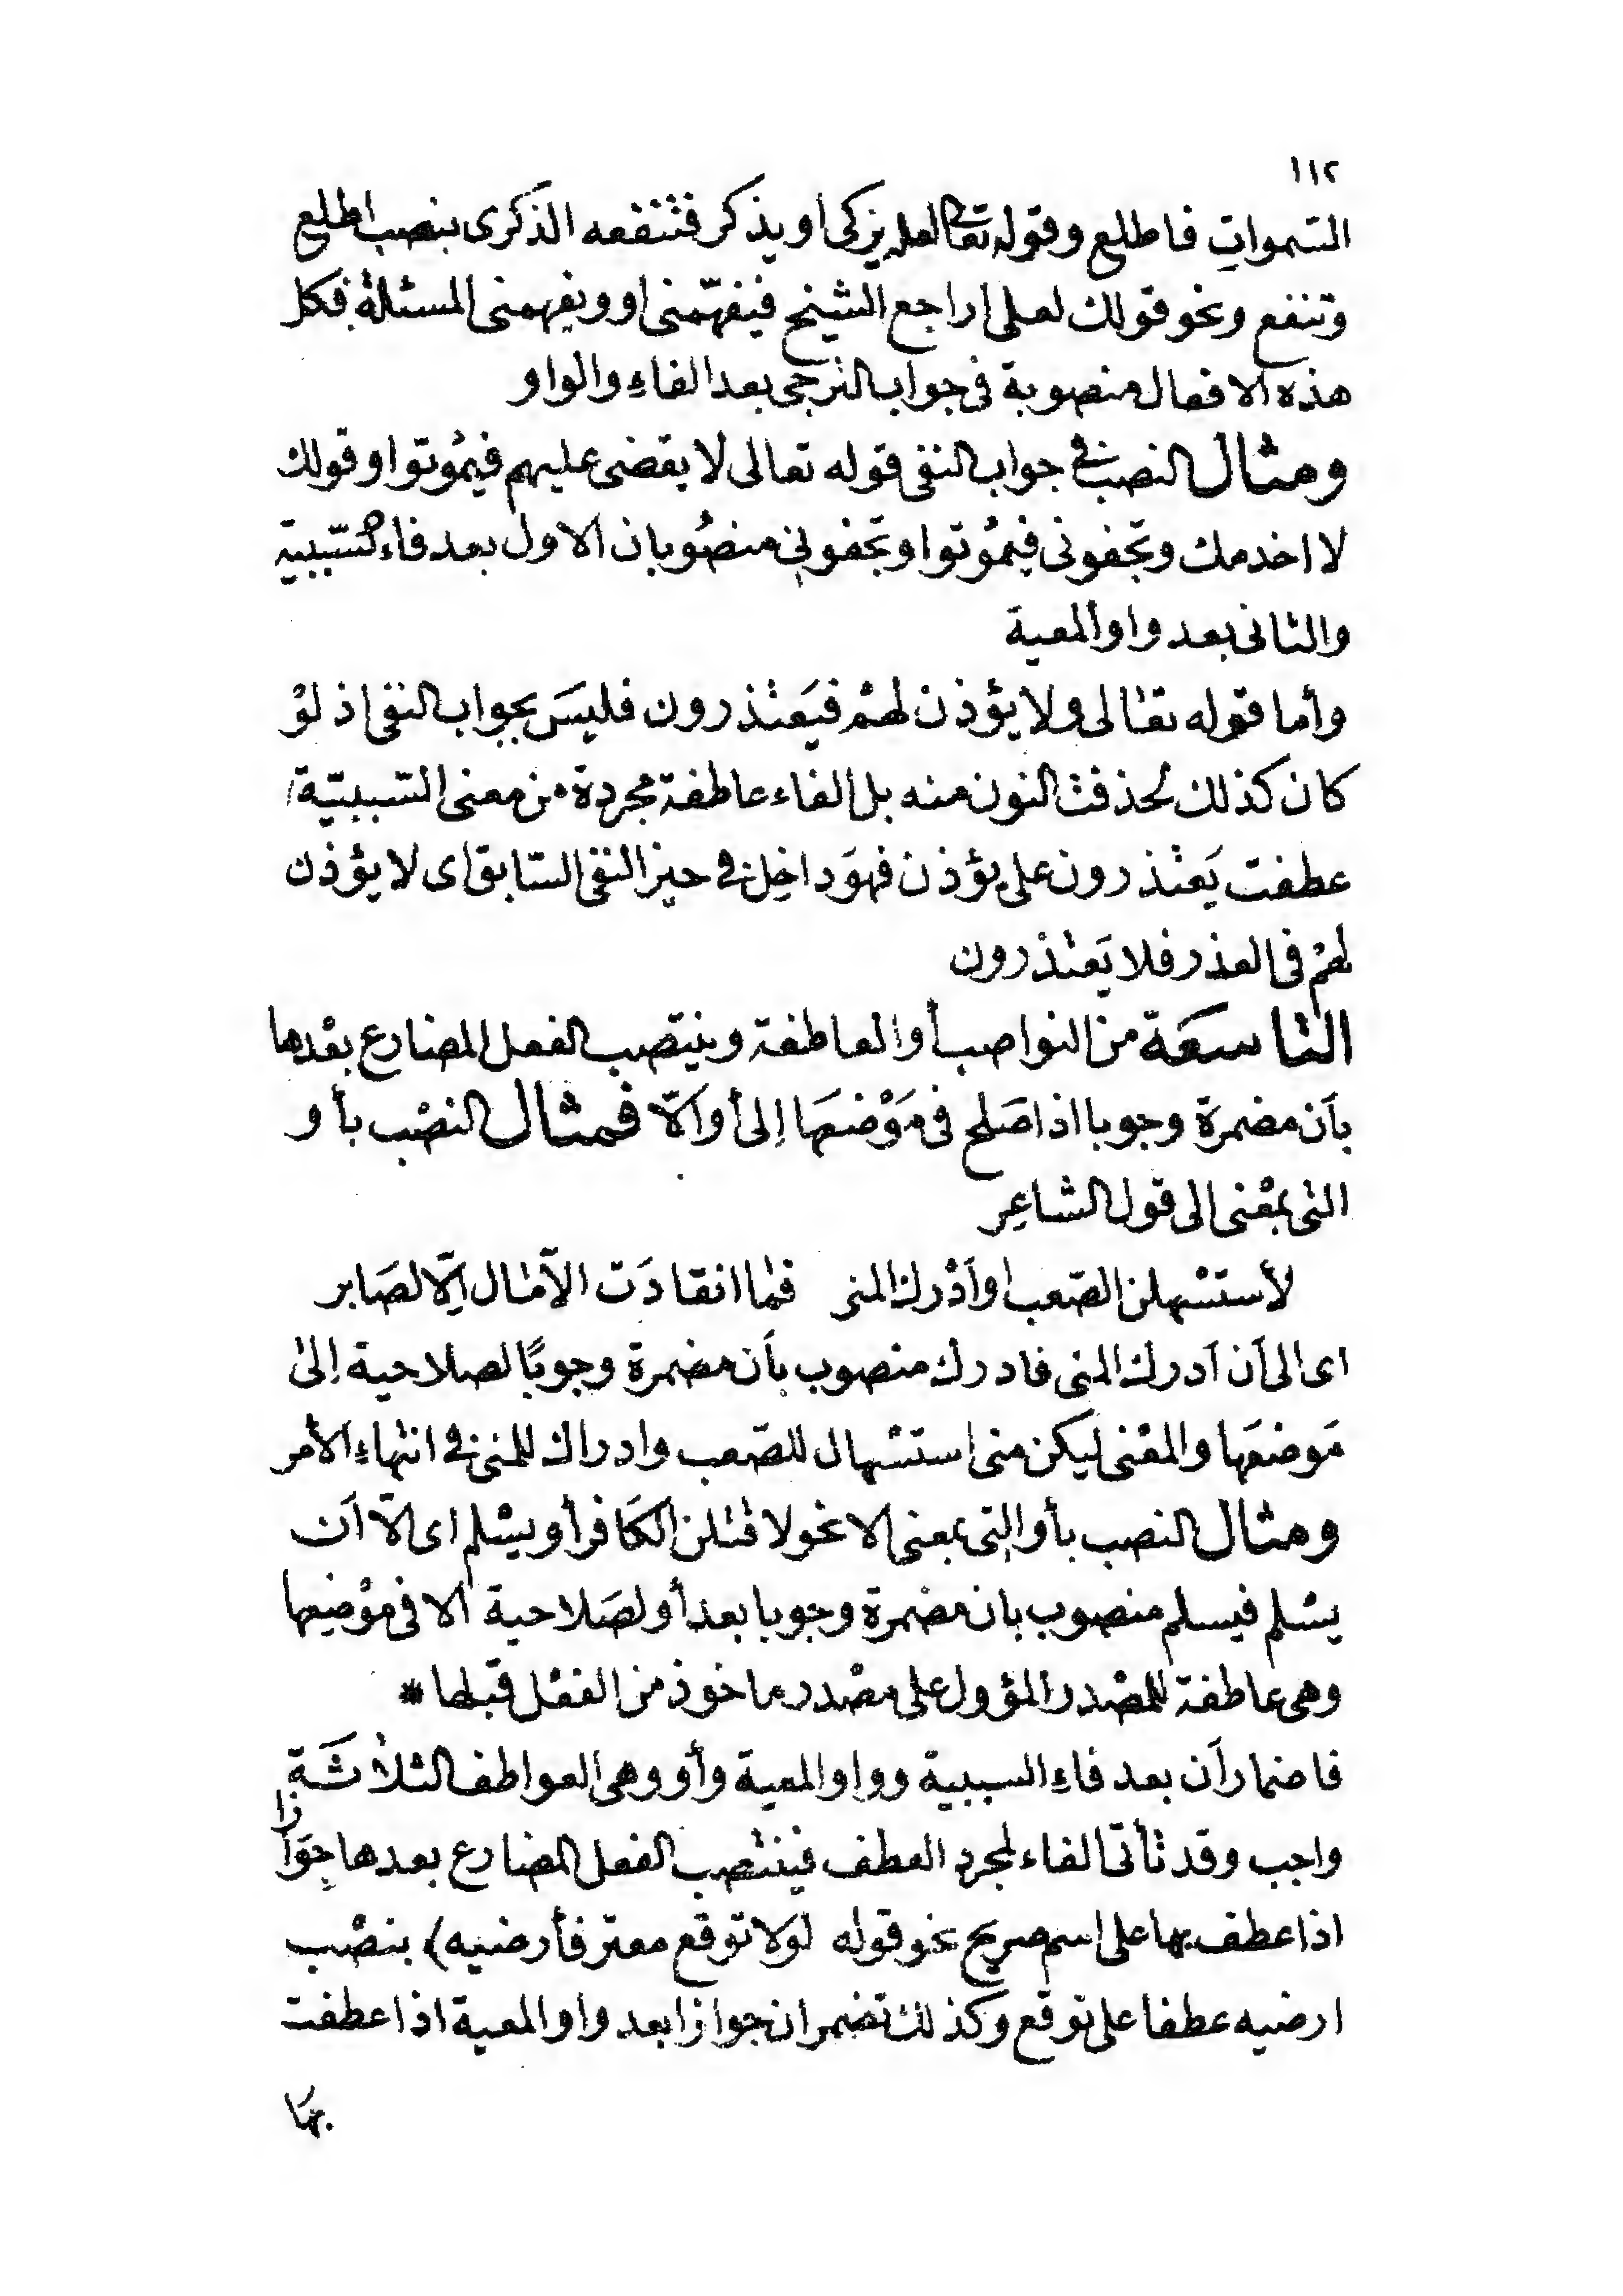 ١١٢
السموات فاطلع وقوله تعالى لعله يزكى أو يذكر فتنفعه الذكرى بنصب اطلع
وتنفع ونحو قولك لعلى اراجع الشيخ فيفهّمنى او ويفهمنى المسئلة فكل
هذه الافعال منصوبة فى جواب الترجى بعد الفاء والواو
ومثال النصب فى جواب النفى قوله تعالى لا يقضى عليهم فيمُوتوا وقولك
لا اخدمك وتجفونى فيمُوتوا وتجفونى منصُوبان الاول بعد فاء السّببية
والثانى بعد واو المعية
وأما قوله تعالى ولا يؤذن لهمْ فيَعتذرون فليسَ بجواب النفى اذ لوْ
كان كذلك لحذفت النون منه بل الفاء عاطفة مجردة من معنى السّببيّة
عطفت يَعتذرون على يؤذن فهوَ داخِل فى حيز النفى السّابق اى لا يؤذن
لهمْ فى العذر فلا يَعتذرون
التاسعَة من النواصب أو العاطفة وينتصب الفعل المضارع بعْدها
بأن مضمرة وجوبا اذا صَلح فى مَوْضعهَا إلى أو الّا فمثال النصْب بأو
التى بمعْنى الى قول الشاعِر
لأستسْهلن الصّعب او أدْرك المنى فما انقادَت الآمال إلّا لصَابر
اى الى أن أدرك المنى فادرك منصوب بأن مضمرة وجوبًا لصلاحية إلى
مَوضعَها والمعْنى ليكن منى استسْهال للصّعب وادراك للمنى فى انتهاء الأمر
ومثال النصب بأو التى بمعنى الا نحو لاقتلن الكَافر أو يسْلم اى الّا أن
يسْلم فيسلم منصوب بان مضمرة وجوبا بعد أو لصَلاحية الا فى موْضِعها
وهى عاطفة للمصْدر المؤول على مصْدر ماخوذ من الفعْل قبلها *
فاضمار أن بعد فاء السببية وواو المعية وأو وهى العواطف الثلاثَة
واجب وقد تأتى الفاء لمجرد العطف فينتصب الفعل المضارع بعدها جوَازا
اذا عطف بها على اسم صريح نحو قوله لولا توقع معتر فأرضيه) بنصْب
ارضيه عطفا على توقع وكذلك تضمر ان جوازا بعد واو المعية اذا عطفت
بهَا